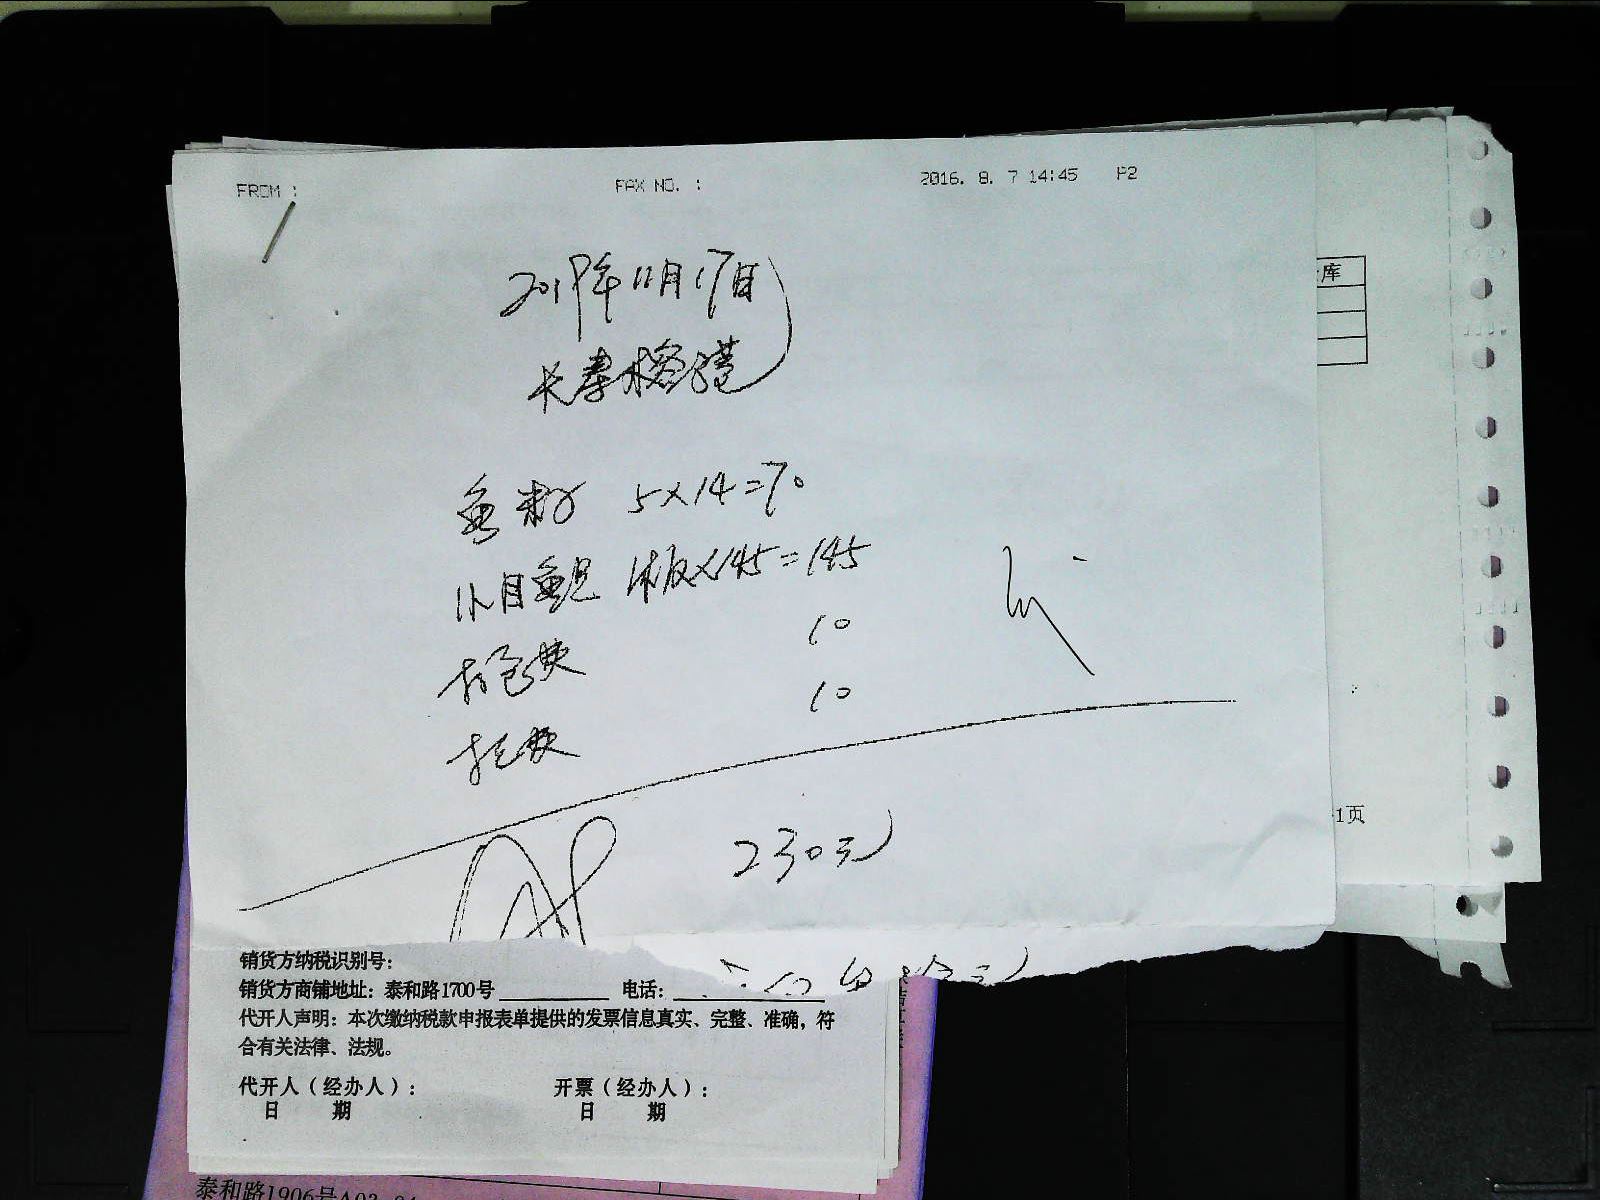 FROM :
FAX NO. :
2016. 8. 7 14:45 P2
2019年11月17日
长寿
鱼粉 5×14=70
145=145
打包费 10
托费 10
230元
库
1页
销货方纳税识别号：
销货方商铺地址：泰和路1700号 电话：
代开人声明：本次缴纳税款申报表单提供的发票信息真实、完整、准确，符
合有关法律、法规。
代开人（经办人）： 开票（经办人）：
日 期 日 期
泰和路1906号A03